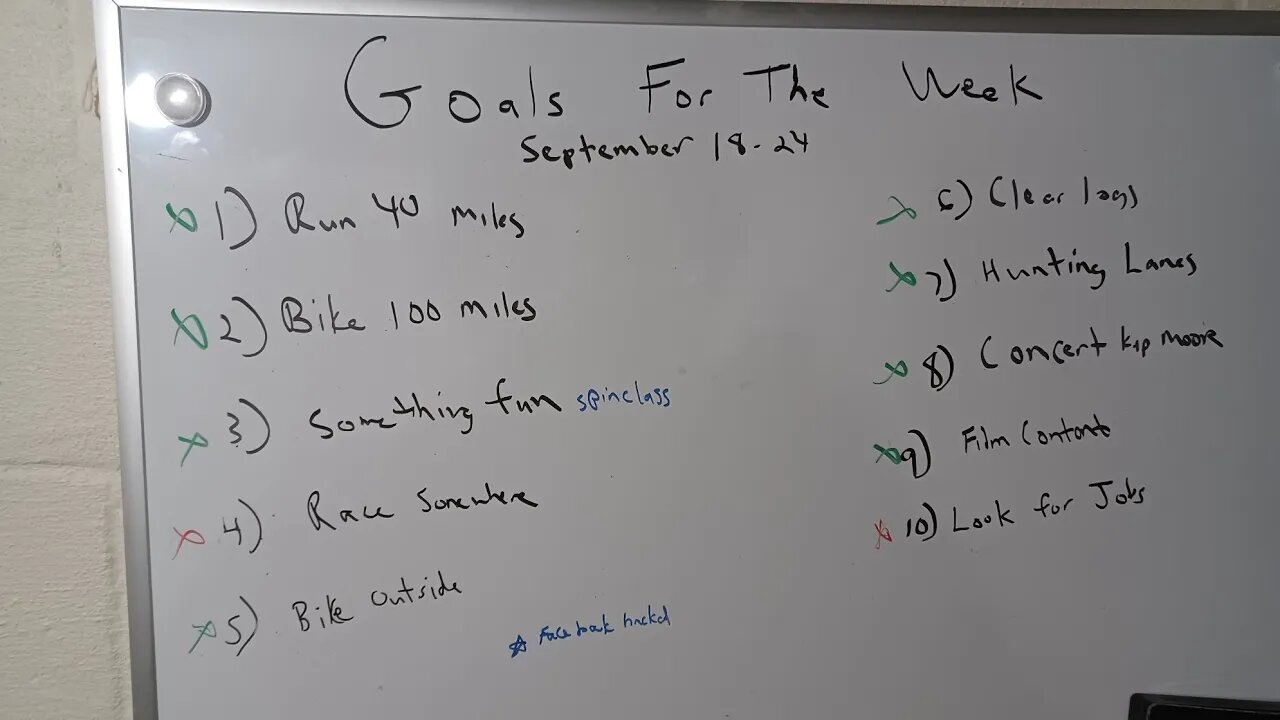 Goals For The Week
September 18-24
x 1) Run 40 miles
x 2) Bike 100 miles
x 3) Something fun spinclass
x 4) Race Somewhere
x 5) Bike outside
☆ Facebook hacked
x 6) Clear logs
x 7) Hunting Lanes
x 8) Concert kip moore
x 9) Film Content
x 10) Look for Jobs